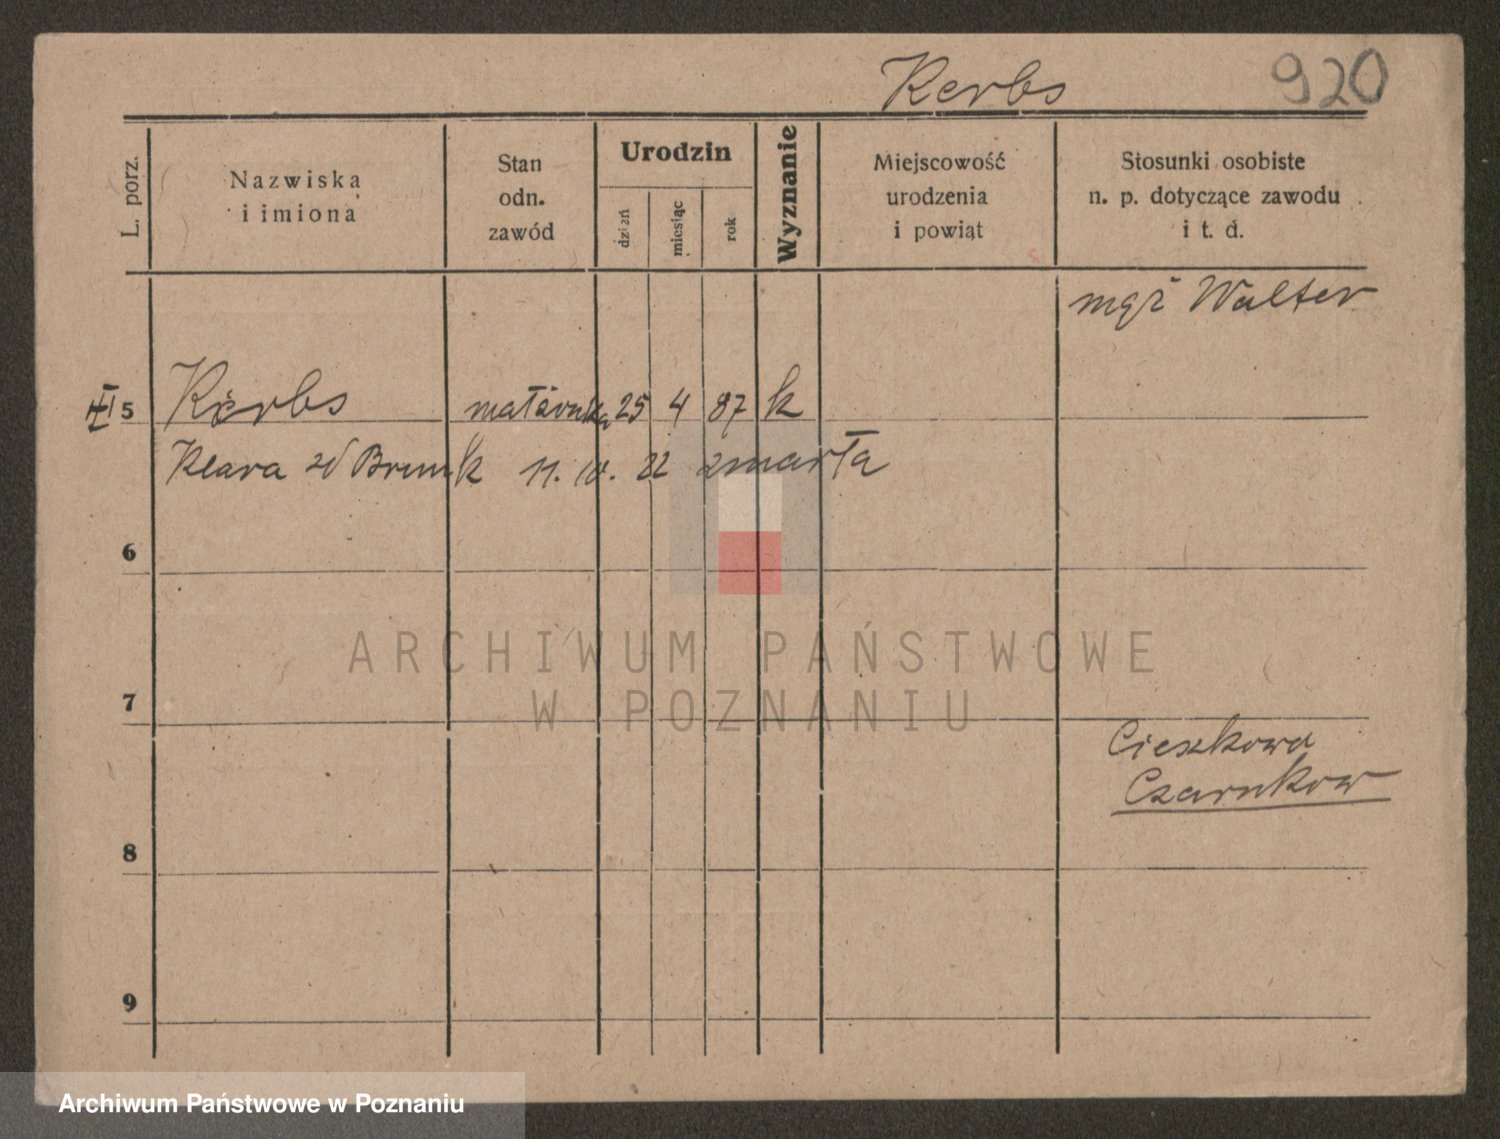 Kerbs 920
L. porz.
Nazwiska
i imiona
Stan
odn.
zawód
Urodzin
dzień
miesiąc
rok
Wyznanie
Miejscowość
urodzenia
i powiąt
Stosunki osobiste
n. p. dotyczące zawodu
i t. d.
mąż Walter
5 Kerbs małżonka 25 4 87 k
Klara zd Brunk 11. 10. 22 zmarła
6
7
Cieszkowa
Czarnkow
8
9
ARCHIWUM PAŃSTWOWE
W POZNANIU
Archiwum Państwowe w Poznaniu